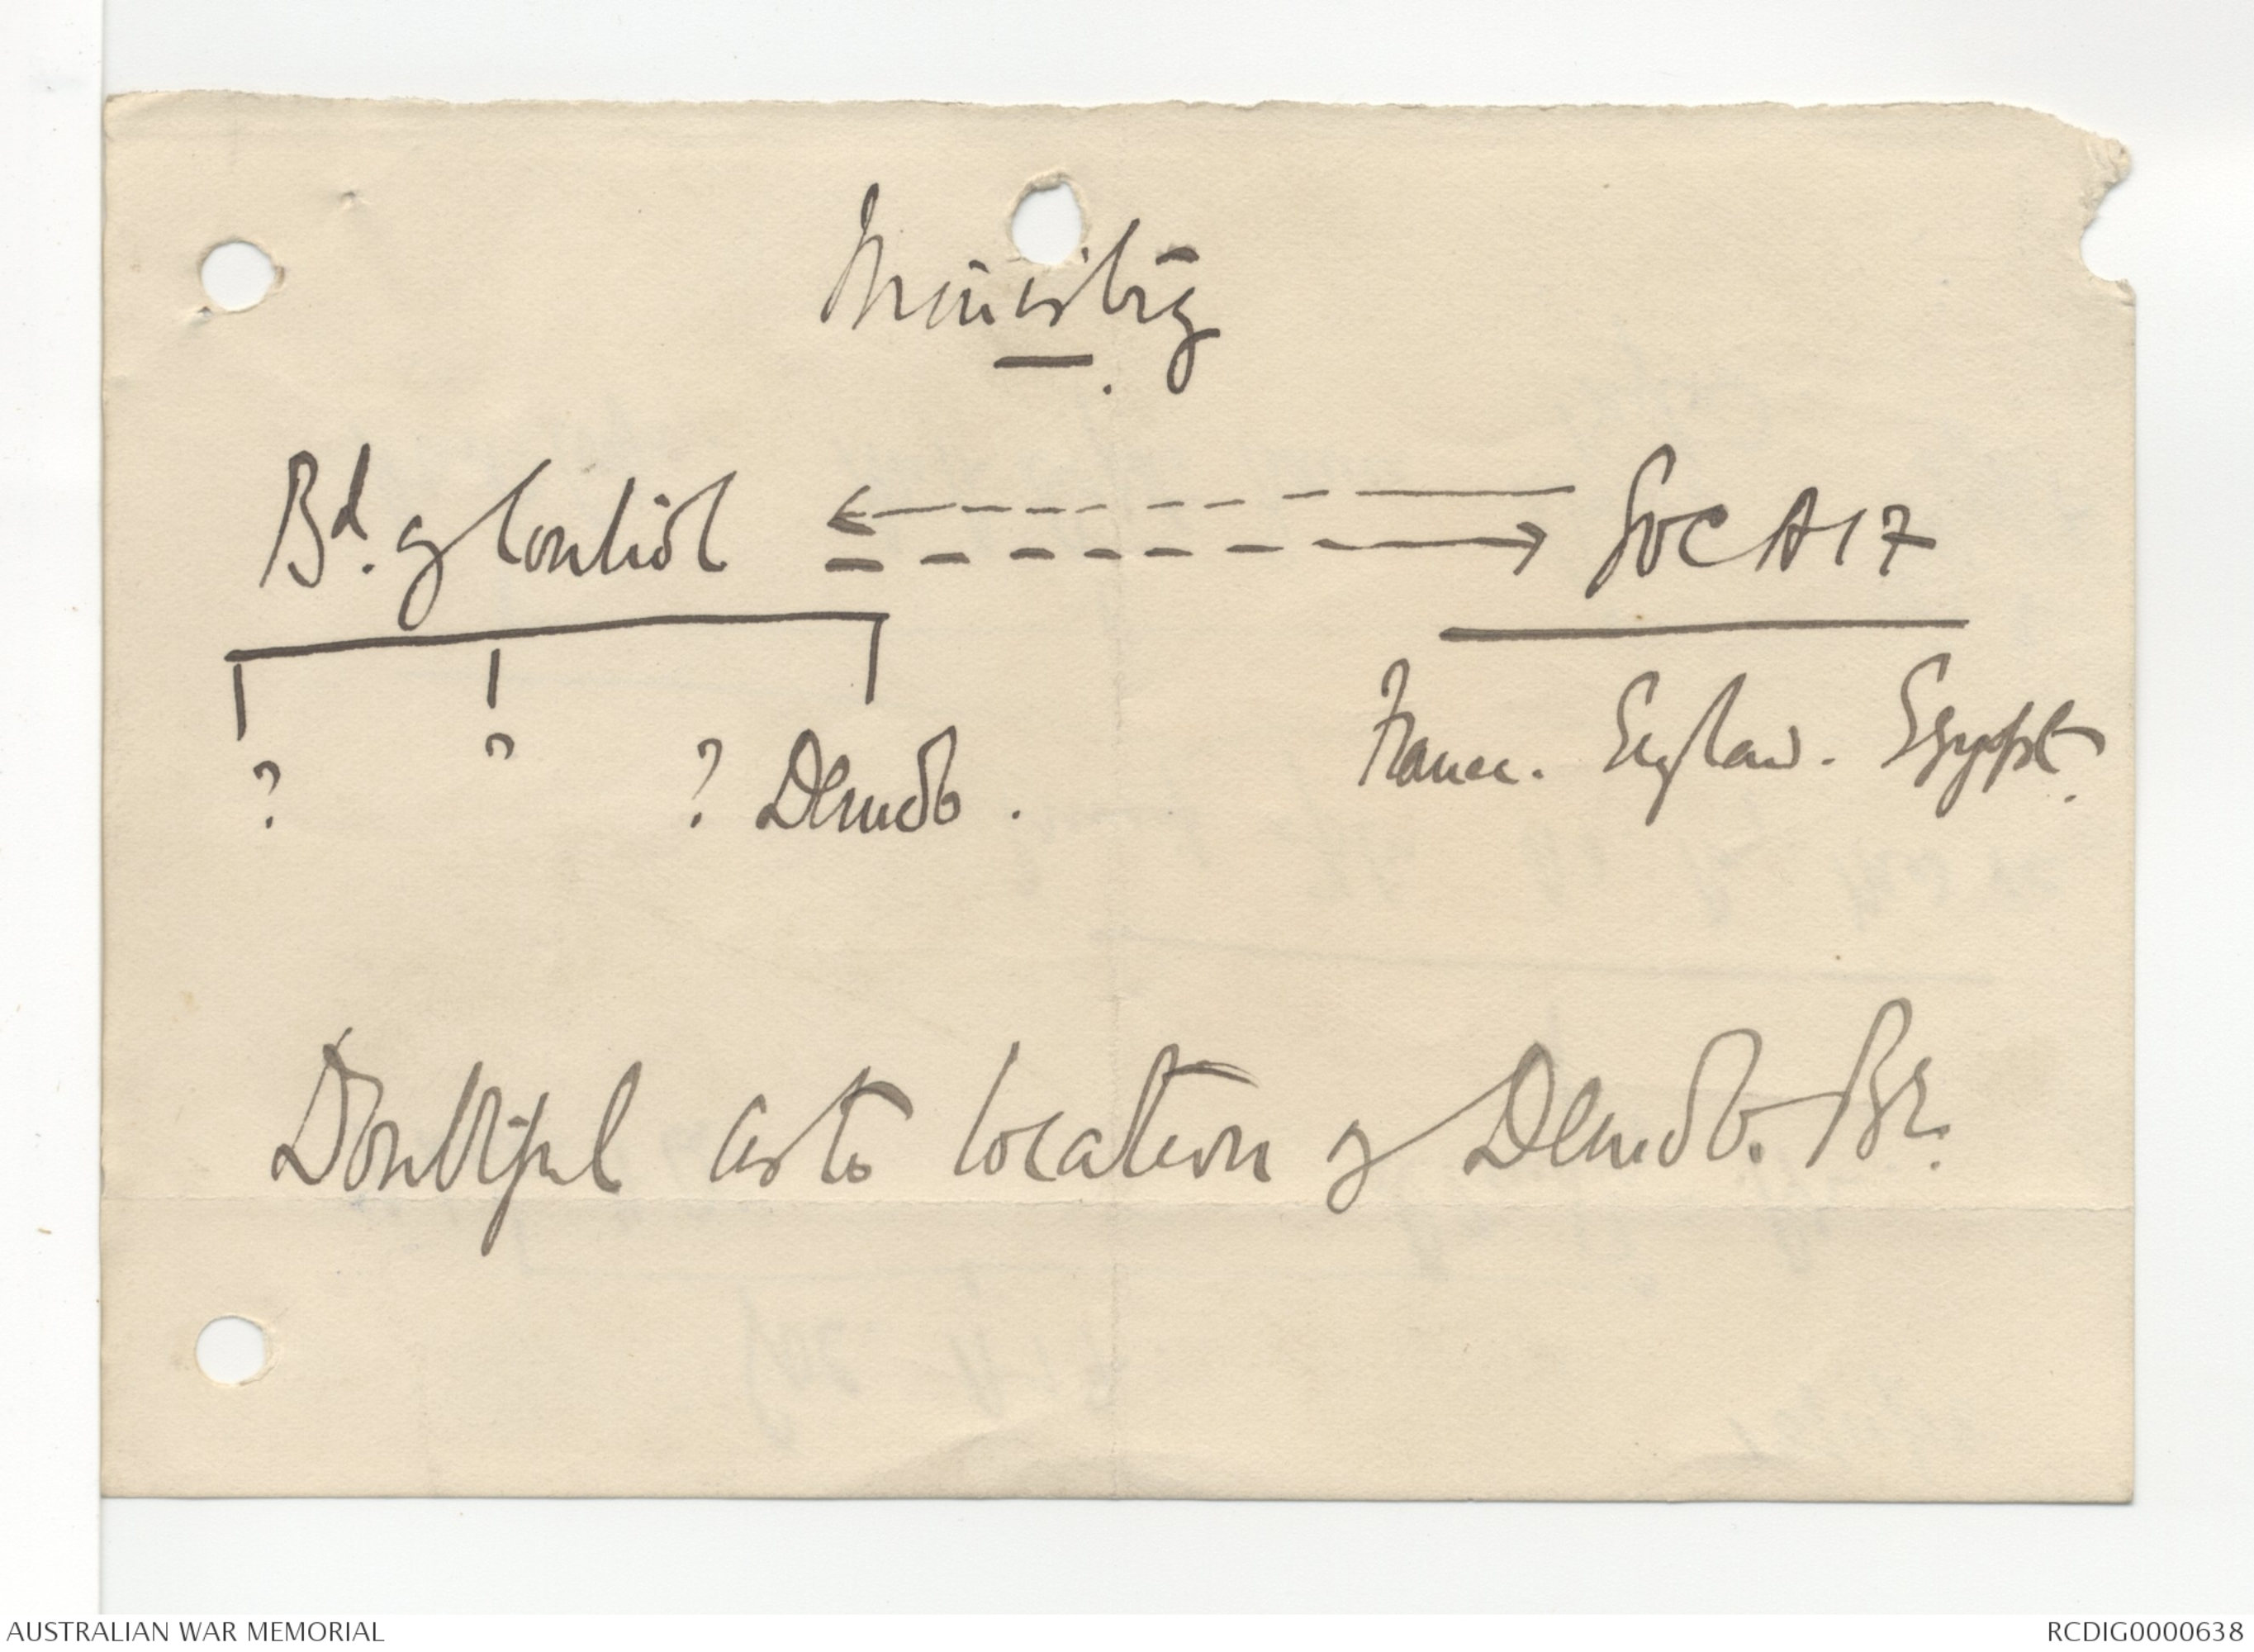 Ministry
Bd. of Control
GOC AIF
? ? ? Demob.
France. England. Egypt.
Doubtful as to location of Demob. Br.
AUSTRALIAN WAR MEMORIAL
RCDIG0000638